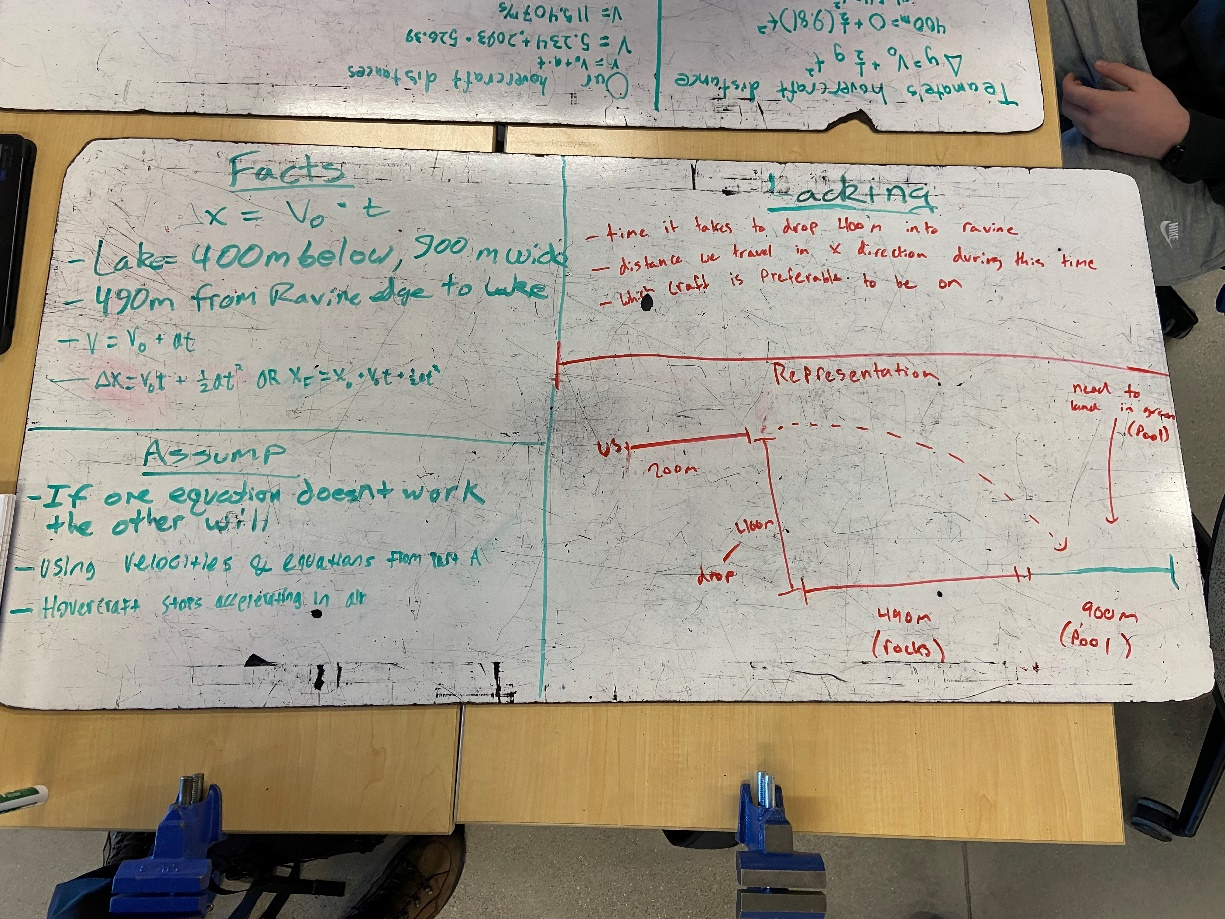 Teamate's hovercraft distance
Δy = V₀ + ½ g t²
400m = 0 + ½ (9.81) t²
Our hovercraft distances
V = V₀ + a · t
V = 5.234 + .2093 · 526.39
V = 119.407 m/s
Facts
Δx = V₀ · t
- Lake = 400m below, 900 m wide
- 490m from Ravine edge to Lake
- V = V₀ + at
- Δx = V₀t + ½at² OR
Assump
- If one equation doesnt work
the other will
- Using velocities & equations from part A
- Hovercraft stops accelerating in air
Lacking
- time it takes to drop 400m into ravine
- distance we travel in x direction during this time
- craft is preferable to be on
Representation
need to
land in green
(Pool)
US
200m
400m
drop
490m
(rocks)
900m
(Pool)
NIKE